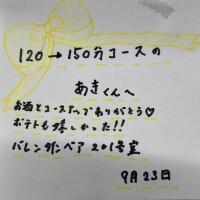 120→150分コースの
あきくんへ
お酒とコースアップありがとう♡
ポテトも嬉しかった!!
バレンタインベア 201号室
9月23日